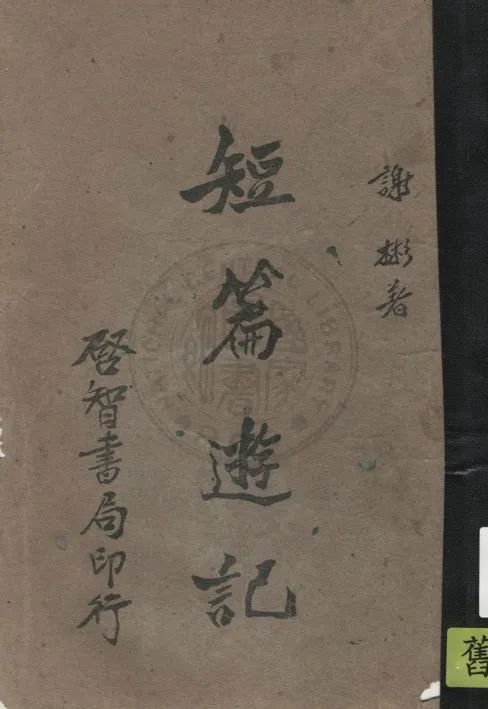 謝彬著
短篇遊記
啓智書局印行
NATIONAL CENTRAL LIBRARY
舊